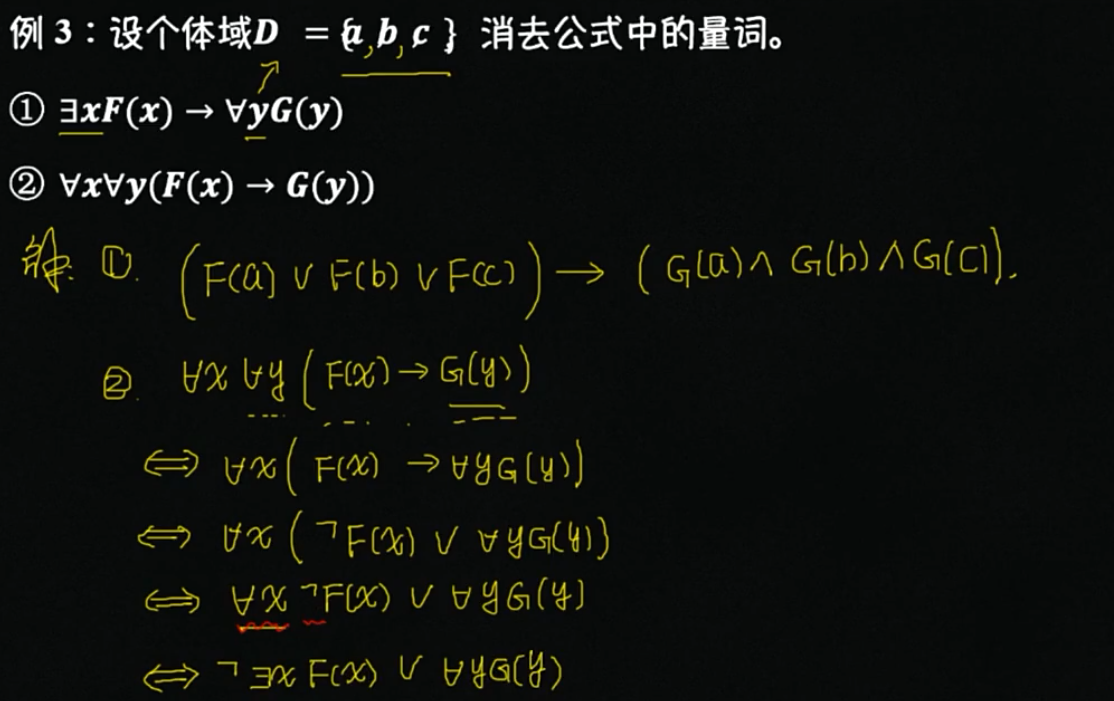 例 3：设个体域D = {a, b, c } 消去公式中的量词。
① ∃xF(x) → ∀yG(y)
② ∀x∀y(F(x) → G(y))
解: ①. (F(a) ∨ F(b) ∨ F(c)) → (G(a) ∧ G(b) ∧ G(c)).
②. ∀x ∀y (F(x) → G(y))
⟺ ∀x (F(x) → ∀yG(y))
⟺ ∀x (¬F(x) ∨ ∀yG(y))
⟺ ∀x ¬F(x) ∨ ∀yG(y)
⟺ ¬∃x F(x) ∨ ∀yG(y)